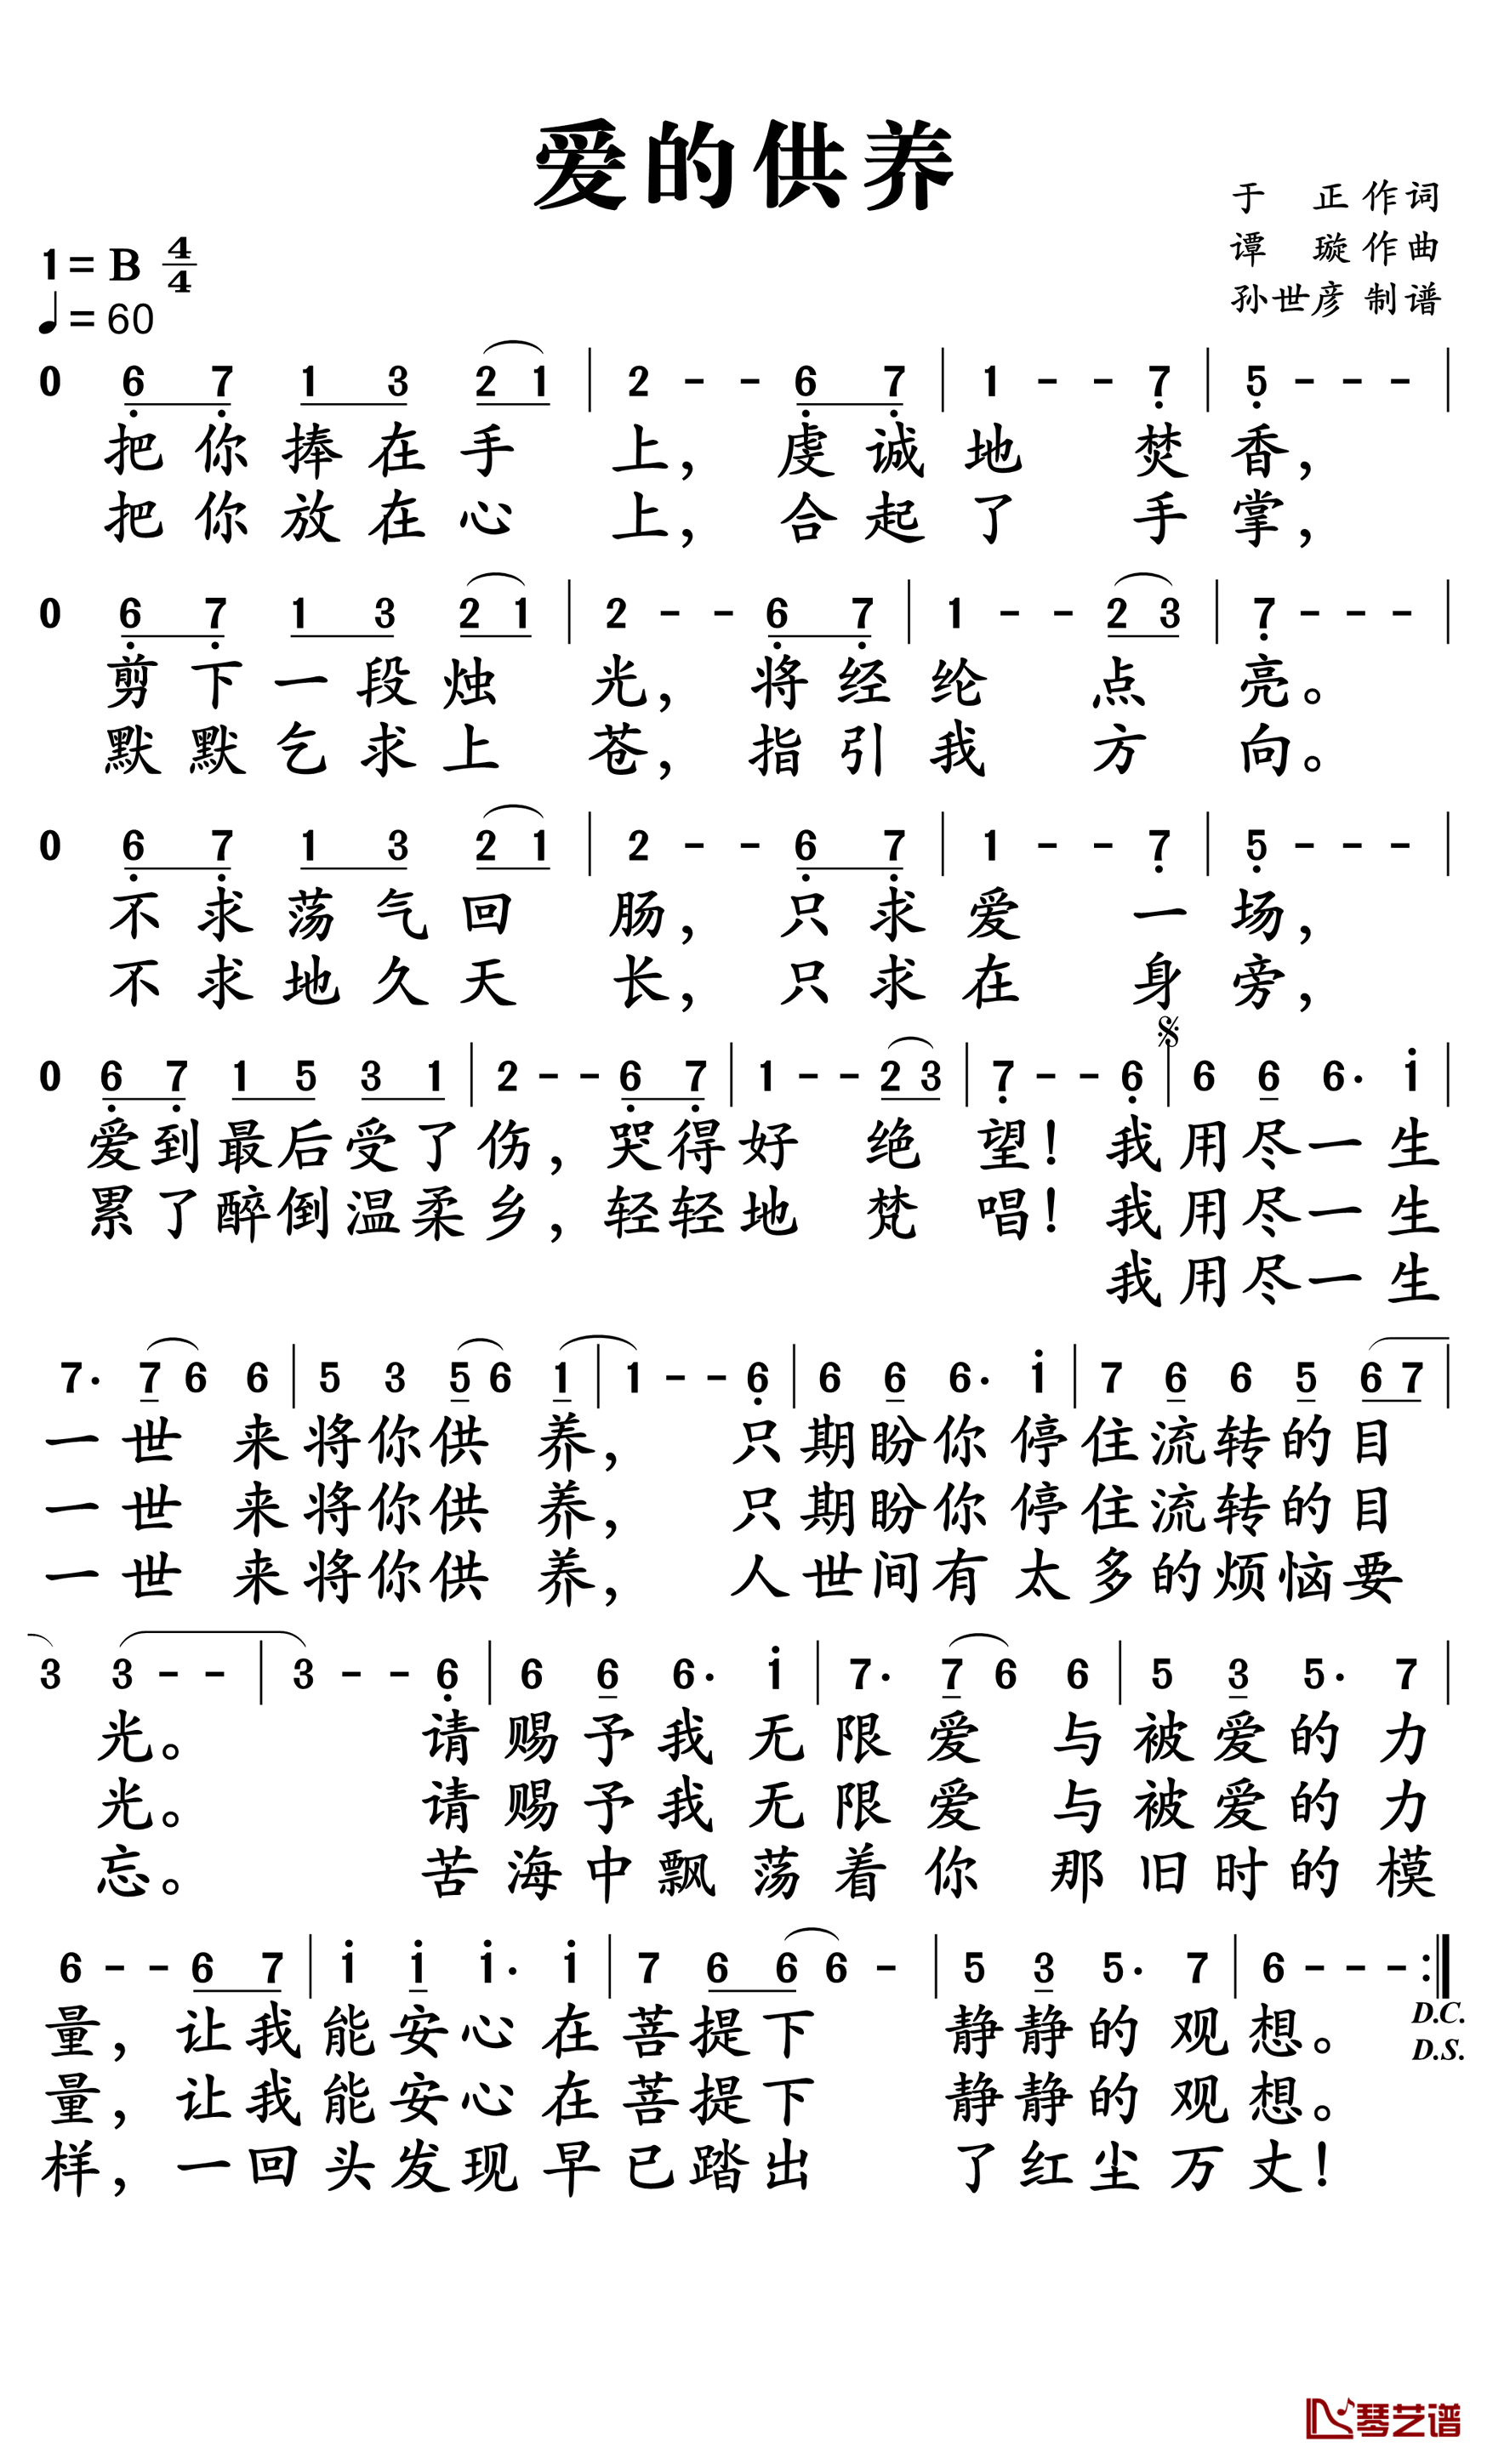 爱的供养
于 正 作词
1= B 4/4
谭 璇 作曲
♩= 60
孙世彦 制谱
0 6̣ 7̣ 1 3 2 1 | 2 - - 6̣ 7̣ | 1 - - 7̣ | 5̣ - - - |
把你捧在手 上，虔诚地 焚香，
把你放在心 上，合起了 手掌，
0 6̣ 7̣ 1 3 2 1 | 2 - - 6̣ 7̣ | 1 - - 2 3 | 7̣ - - - |
剪下一段烛 光，将经纶 点亮。
默默乞求上 苍，指引我 方向。
0 6̣ 7̣ 1 3 2 1 | 2 - - 6̣ 7̣ | 1 - - 7̣ | 5̣ - - - |
不求荡气回 肠，只求爱 一场，
不求地久天 长，只求在 身旁，
0 6̣ 7̣ 1 5 3 1 | 2 - - 6̣ 7̣ | 1 - - 2 3 | 7̣ - - 6̣ | 6 6 6· i |
爱到最后受了伤，哭得好 绝 望！我用尽一生
累了醉倒温柔乡，轻轻地 梵 唱！我用尽一生
我用尽一生
7· 7 6 6 | 5 3 5 6 1 | 1 - - 6̣ | 6 6 6· i | 7 6 6 5 6 7 |
一世 来将你供 养， 只期盼你停住流转的目
一世 来将你供 养， 只期盼你停住流转的目
一世 来将你供 养， 人世间有太多的烦恼要
3 3 - - | 3 - - 6̣ | 6 6 6· i | 7· 7 6 6 | 5 3 5· 7 |
光。 请赐予我无限爱 与被爱的力
光。 请赐予我无限爱 与被爱的力
忘。 苦海中飘荡着你 那旧时的模
6 - - 6 7 | i i i· i | 7 6 6 6 - | 5 3 5· 7 | 6 - - - :‖
量，让我能安心在菩提下 静静的观想。 D.C.
D.S.
量，让我能安心在菩提下 静静的观想。
样，一回头发现早已踏出 了红尘万丈！
琴艺谱